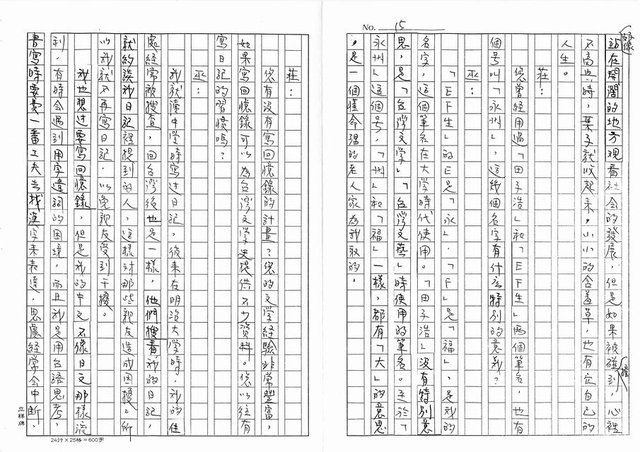 No. 15
站在開闊的地方觀察社會的發展，但是如果被碰到，心裡
不高興時，葉子就收起來。小小的含羞草，也有它自己的
人生。
莊：
您曾經用過「田子浩」和「EF生」兩個筆名，也有
個號叫「永州」，這幾個名字有什麼特別的意義？
巫：
「EF生」的E是「永」，「F」是「福」，是我的
名字，這個筆名在大學時代使用。「田子浩」沒有特別意
思，是「台灣文學」「台灣文藝」時使用的筆名。至於「
永州」這個号，「州」和「福」一樣，都有「大」的意思
，是一個怪命理的老人家為我取的。
莊：
您有沒有寫回憶錄的計畫？您的文學經驗非常豐富，
如果寫回憶錄可以為台灣文學史提供不少資料。您以往有
寫日記的習慣嗎？
巫：
我就讀中學時寫過日記，後來在明治大學時，我的住
處經常被搜查，回台灣後也是一樣，他們搜看我的日記，
就約談我日記裡提到的人，這樣對那些親友造成困擾，所
以我就不再寫日記，以免親友受到干擾。
我也想過要寫回憶錄，但是我的中文不像日文那樣流
利，有時會遇到用字遣詞的困境，而且我是用台語思考，
書寫時要費一番工夫去找漢字來表達，思慮經常會中斷，
24行×25格＝600字